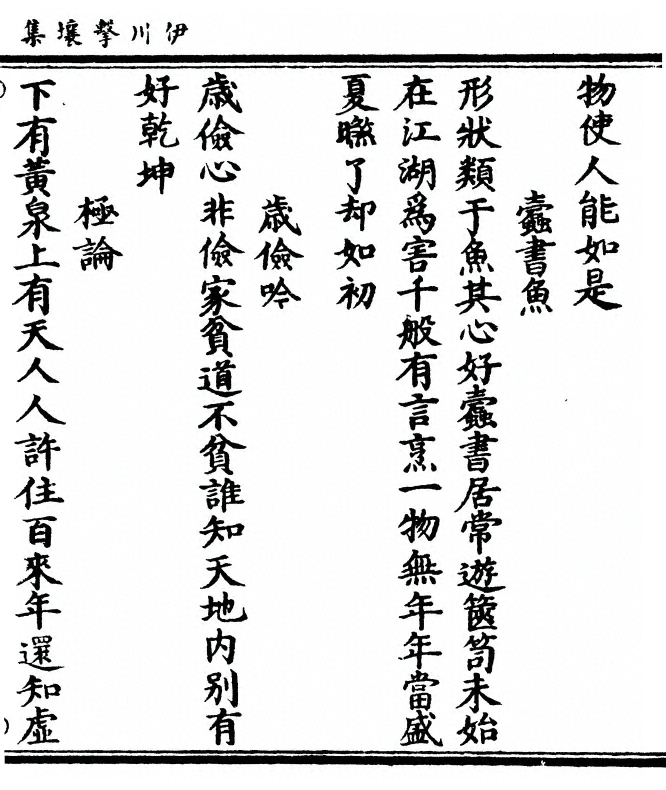 伊川擊壤集
物使人能如是
蠹書魚
形狀類于魚其心好蠹書居常遊篋笥未始
在江湖爲害千般有言烹一物無年年當盛
夏㬠了却如初
歲儉吟
歲儉心非儉家貧道不貧誰知天地内别有
好乾坤
極論
下有黃泉上有天人人許住百來年還知虛